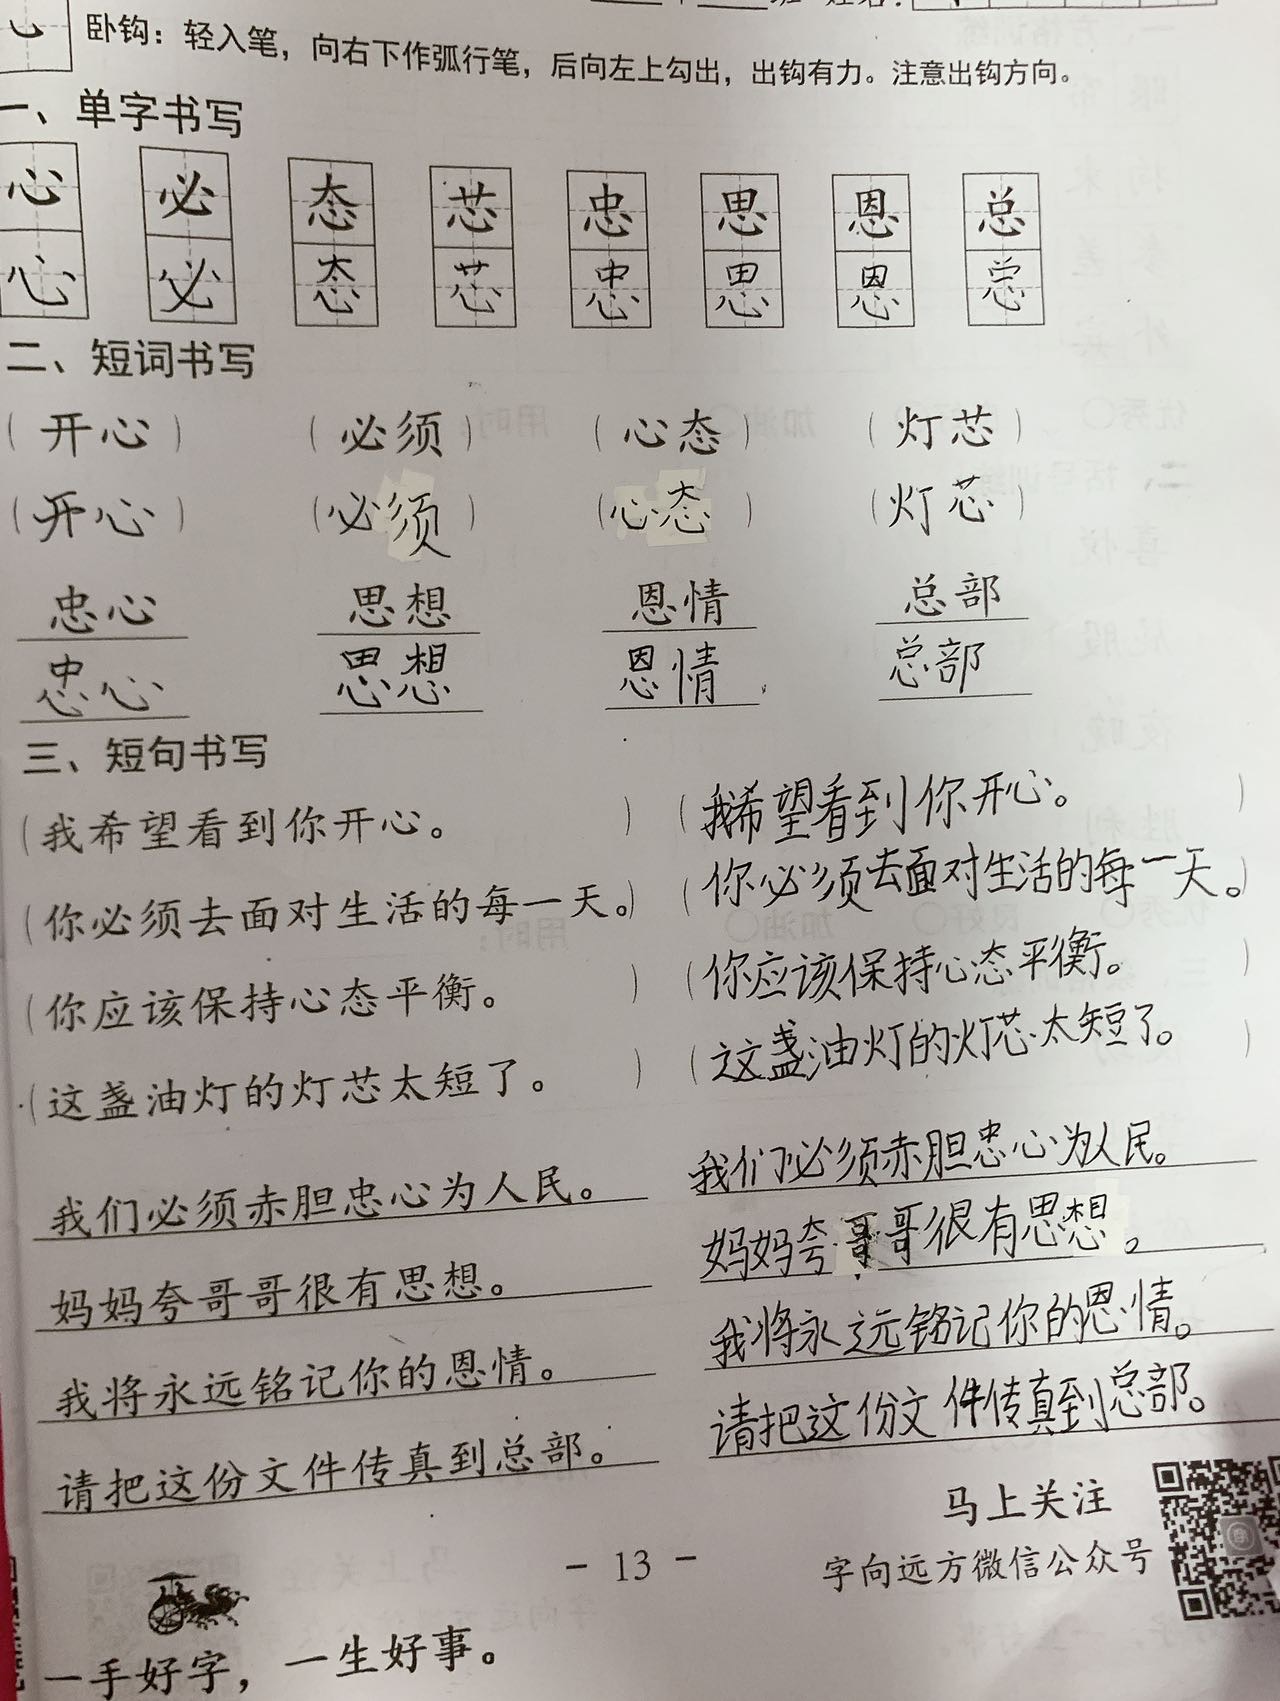 卧钩：轻入笔，向右下作弧行笔，后向左上勾出，出钩有力。注意出钩方向。
一、单字书写
心 必 态 芯 忠 思 恩 总
心 必 态 芯 忠 思 恩 总
二、短词书写
（开心） （必须） （心态） （灯芯）
（开心） （必须） （心态） （灯芯）
忠心 思想 恩情 总部
忠心 思想 恩情 总部
三、短句书写
（我希望看到你开心。） （我希望看到你开心。）
（你必须去面对生活的每一天。） （你必须去面对生活的每一天。）
（你应该保持心态平衡。） （你应该保持心态平衡。）
（这盏油灯的灯芯太短了。） （这盏油灯的灯芯太短了。）
我们必须赤胆忠心为人民。 我们必须赤胆忠心为人民。
妈妈夸哥哥很有思想。 妈妈夸哥哥很有思想。
我将永远铭记你的恩情。 我将永远铭记你的恩情。
请把这份文件传真到总部。 请把这份文件传真到总部。
马上关注
- 13 -
字向远方微信公众号
一手好字，一生好事。